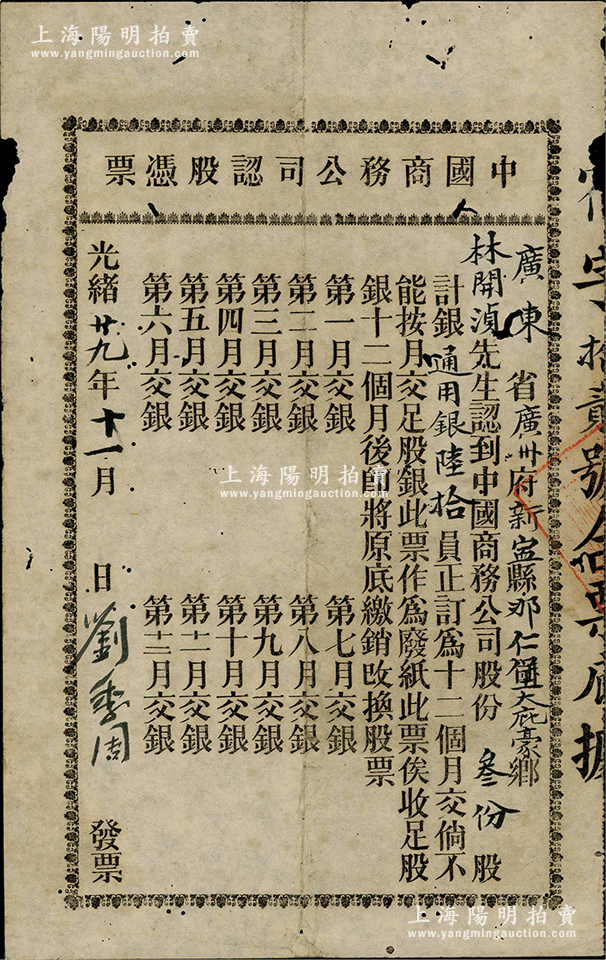 上海陽明拍賣
www.yangmingauction.com
中國商務公司認股憑票
字拾貳號
票底據
廣東省廣州府新寧縣那仁堡大庇豪鄉
林開湞先生認到中國商務公司股份叁份股
計銀通用銀陸拾員正訂爲十二個月交倘不
能按月交足股銀此票作爲廢紙此票俟收足股
銀十二個月後即將原底繳銷改換股票
第一月交銀 第七月交銀
第二月交銀 第八月交銀
第三月交銀 第九月交銀
第四月交銀 第十月交銀
第五月交銀 第十一月交銀
第六月交銀 第十二月交銀
光緒廿九年十一月 日劉季周 發票
上海陽明拍賣
www.yangmingauction.com
上海陽明拍賣
www.yangmingauction.com